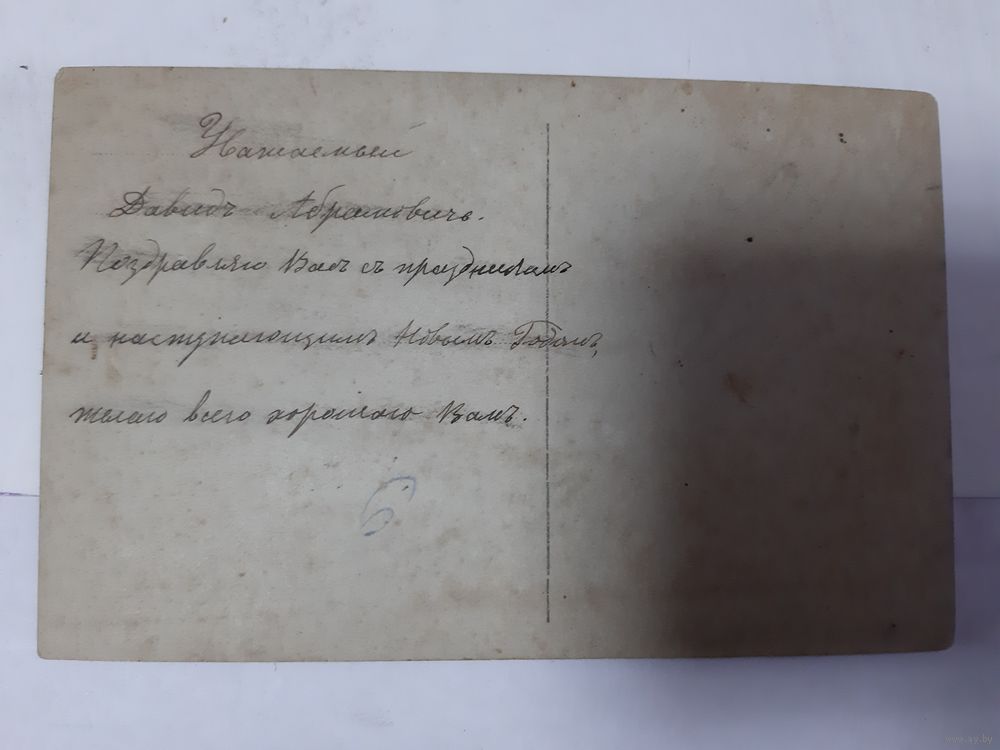 Уважаемый
Давидъ Абрамовичъ.
Поздравляю Васъ съ праздникамъ
и наступающимъ Новымъ Годамъ,
желаю всего хорошаго Вамъ.
www.ay.by